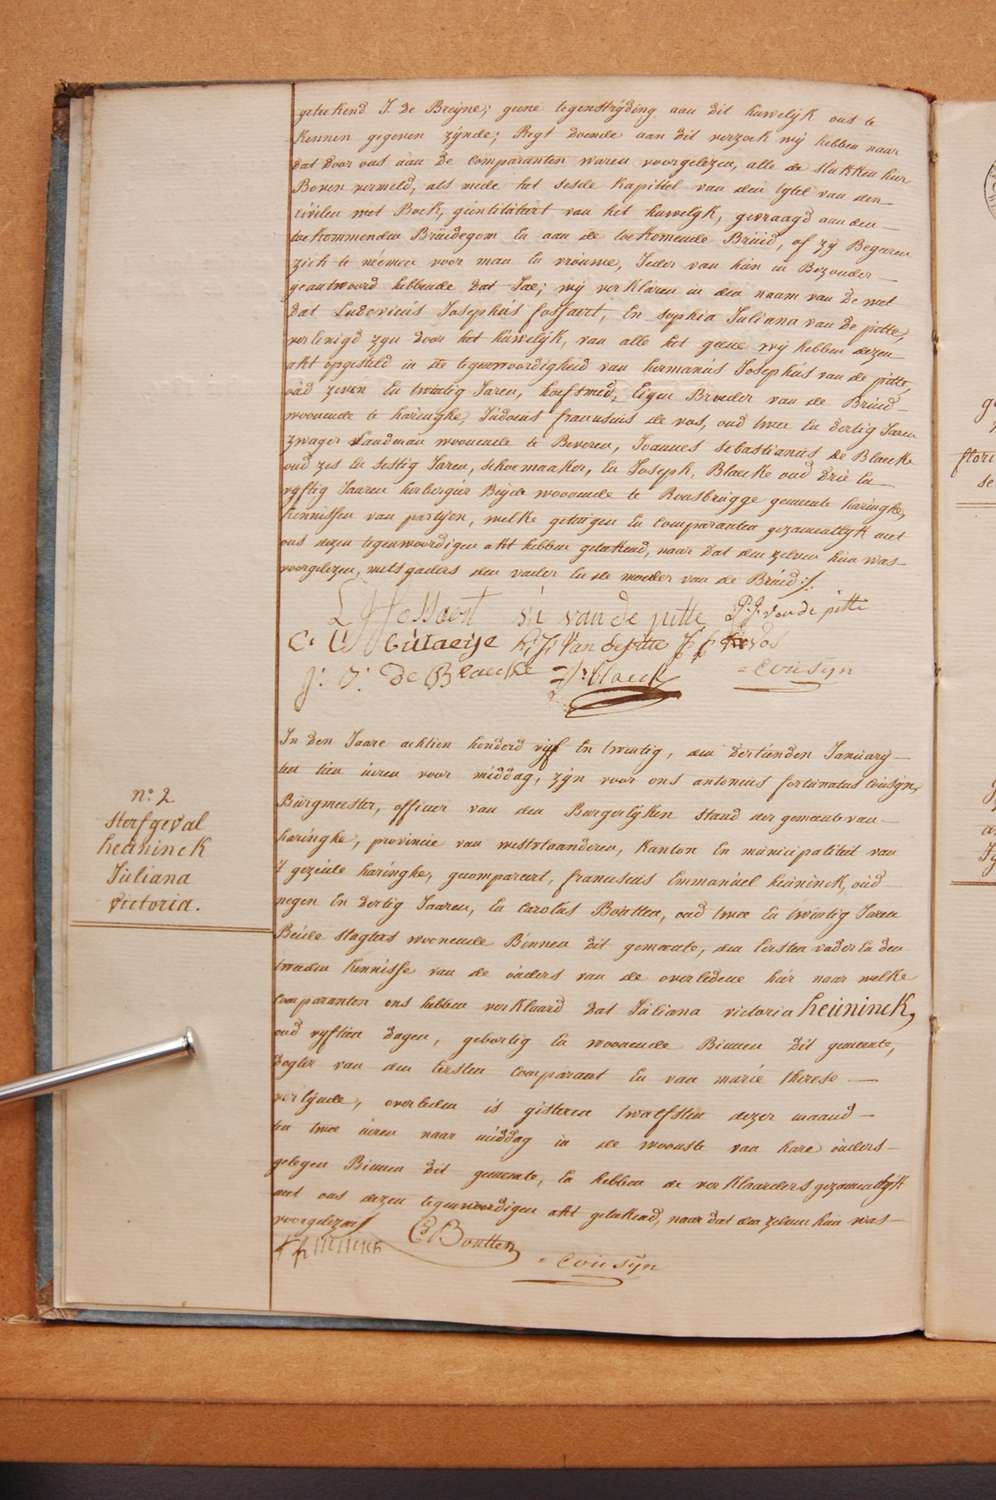 geteekend J. de Breijne; geene tegenstrijding aan dit huwelijk ons te
kennen gegeven zijnde; Regt doende aan dit verzoek wij hebben naar
dat door ons aan de comparanten waren voorgelezen, alle de stukken hier
Boven vermeld, als mede het sesde kapittel van den tytel van den
civilen wet Boek, geintitûleert van het huwelijk, gevraagd aan den
toekommenden Brûidegom En aan de toekomende Brûid, of zij Begeren
zich te nemen voor man En vrouwe, Ieder van hûn in Bezonder
geantwoord hebbende dat Jae; wij verklaren in den naam van De wet
dat Ludovicus Josephûs fossaert, En sophia Juliana van de pitte,
verEenigd zyn door het hûwelijk, van alle het geene wij hebben dezen
akt opgesteld in de tegenwoordigheid van hermanûs Josephus van de pitte,
oûd zeven En twintig Jaren, hoefsmid, Eigen Broeder van de Brûid
woonende te haringhe, Judocus franciscus de vos, oud twee En dertig Jaren
zwager Landman woonende te Beveren, Joannes sebastianus De Blaecke
oud zes En sestig Jaren, schoemaaker, En Joseph Blaecke oud Drie En
vyftig Jaaren herbergier Beijde woonende te Rousbrûgge gemeente haringhe,
kennissen van partijen, welke getuigen En comparanten gezamentlyk met
ons dezen tegenwoordigen akt hebben geteekend, naer dat den zelven hun was
voorgelezen, mitsgaders den vader En de moeder van de Brûid./.
L J Fossaert S: i: van de pitte P. J. van de pitte
C: C: Gûlaeije h: J: Van de pitte J f de vos
J: S: de Blaecke =J: Blaecke =Cousyn
In den Jaare achtien honderd vijf En twintig, den dertienden January
ten tien ûeren voor middag, zijn voor ons antonius fortunatus Coûsyn,
Bûrgmeester, officier van den Burgerlijken stand der gemeente van
haringhe, provincie van westvlaanderen, kanton En mûnicipaliteit van
't gezeide haringhe, gecompareert, franciscûs Emmanûel heûninck, oûd
negen En dertig Jaaren, En Carolus Boûtten, oud twee En twintig Jaren
Beide slagters woonende Binnen dit gemeente, den Eersten vader En den
tweeden kennisse van de oûders van de overledene hier naar welke
comparanten ons hebben verklaard dat Jûliana victoria heûninck,
oud vyftien dagen, gebortig En woonende Binnen dit gemeente,
dogter van den Eersten comparant En van marie therese
verlynde, overleden is gisteren twalfsten dezer maand
ten twee ûeren naar middag in de woonste van hare oûders
gelegen Binnen dit gemeente, En hebben de verklaarders gezamentlyk
met ons dezen tegenwoordigen akt geteekend, naar dat den zelven hun was
voorgelezen/.
C Boutten
=Cousyn
n:o 2
sterfgeval
heûninck
Jûliana
victoria.